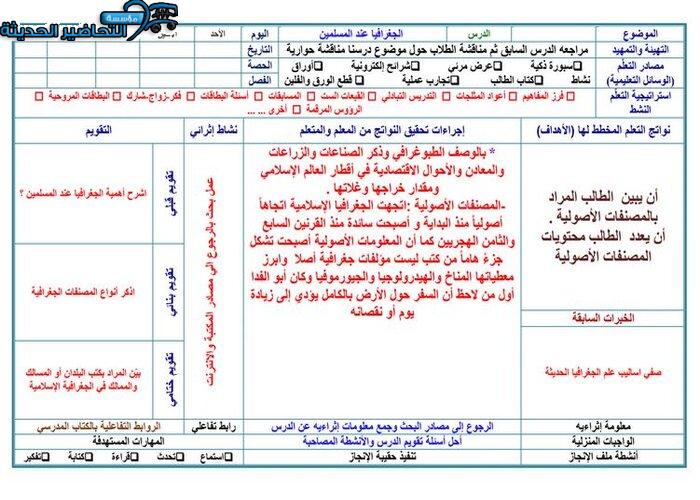 مؤسسة
التحاضير الحديثة
الموضوع
الدرس
الجغرافيا عند المسلمين
اليوم
الأحد
التهيئة والتمهيد
مراجعه الدرس السابق ثم مناقشة الطلاب حول موضوع درسنا مناقشة حوارية
التاريخ
مصادر التعلم
سبورة ذكية
عرض مرئي
شرائح إلكترونية
أوراق
الحصة
(الوسائل التعليمية)
نشاط
كتاب الطالب
تجارب عملية
قطع الورق والفلين
الفصل
استراتيجية التعلم
النشط
فرز المفاهيم
أعواد المثلجات
التدريس التبادلي
القبعات الست
المسابقات
أسئلة البطاقات
فكر-زواج-شارك
البطاقات المروحية
الرؤوس المرقمة
أخرى ... ...
نواتج التعلم المخطط لها (الأهداف)
إجراءات تحقيق النواتج من المعلم والمتعلم
نشاط إثرائي
التقويم
أن يبين الطالب المراد
بالمصنفات الأصولية .
أن يعدد الطالب محتويات
المصنفات الأصولية
الخبرات السابقة
صفي اساليب علم الجغرافيا الحديثة
* بالوصف الطبوغرافي وذكر الصناعات والزراعات
والمعادن والأحوال الاقتصادية في أقطار العالم الإسلامي
ومقدار خراجها وغلاتها .
-المصنفات الأصولية :اتجهت الجغرافيا الإسلامية اتجاهاً
أصولياً منذ البداية و أصبحت سائدة منذ القرنين السابع
والثامن الهجريين كما أن المعلومات الأصولية أصبحت تشكل
جزءً هاماً من كتب ليست مؤلفات جغرافية أصلا وابرز
معطياتها المناخ والهيدرولوجيا والجيورموفيا وكان أبو الفدا
أول من لاحظ أن السفر حول الأرض بالكامل يؤدي إلى زيادة
يوم أو نقصانه
عمل بحث بالرجوع الي مصادر المكتبة والانترنت
تقويم قبلي
اشرح أهمية الجغرافيا عند المسلمين ؟
تقويم بنائي
اذكر أنواع المصنفات الجغرافية
تقويم ختامي
بيّن المراد بكتب البلدان أو المسالك
والممالك في الجغرافية الإسلامية
معلومة إثراءيه
الرجوع إلى مصادر البحث وجمع معلومات إثراءيه عن الدرس
رابط تفاعلي
الروابط التفاعلية بالكتاب المدرسي
الواجبات المنزلية
أحل أسئلة تقويم الدرس والأنشطة المصاحبة
المهارات المستهدفة
أنشطة ملف الإنجاز
تنفيذ حقيبة الإنجاز
استماع
تحدث
قراءة
كتابة
تفكير